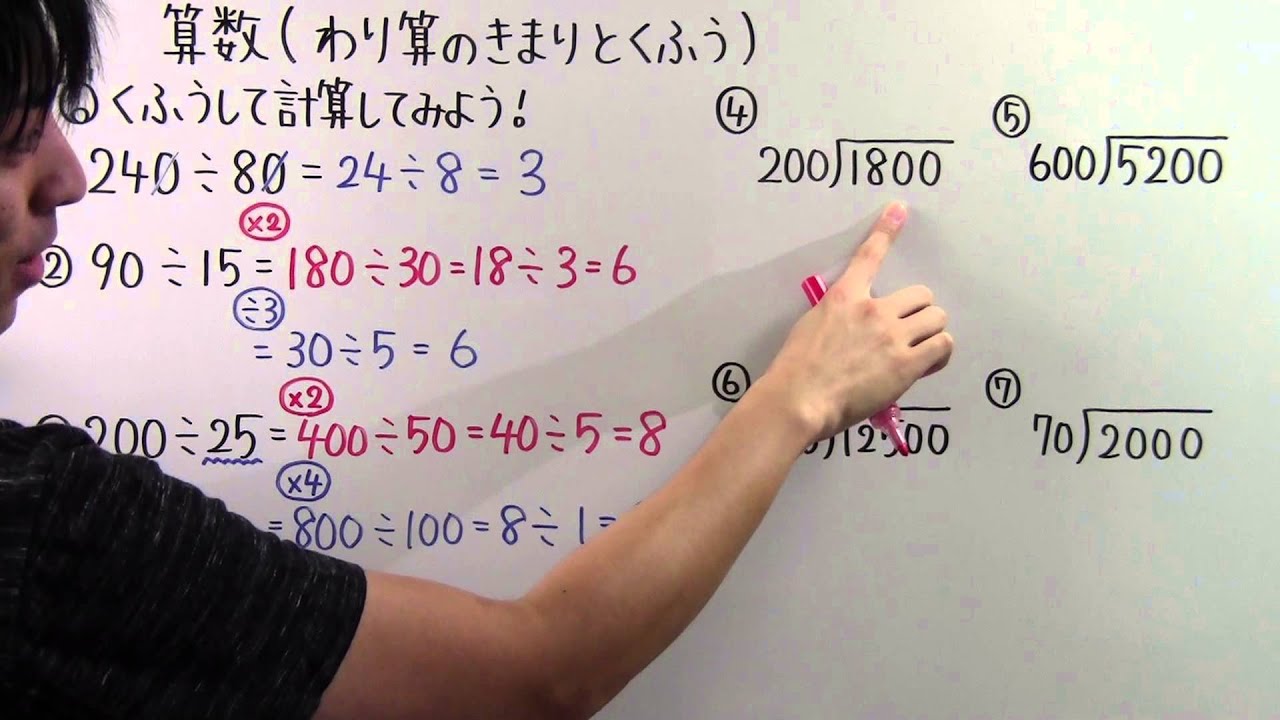 算数(わり算のきまりとくふう)
くふうして計算してみよう!
240÷80=24÷8=3
×2
② 90÷15=180÷30=18÷3=6
÷3
=30÷5=6
×2
200÷25=400÷50=40÷5=8
×4
=800÷100=8÷1=
④
200)1800
⑤
600)5200
⑥
)12500
⑦
70)2000